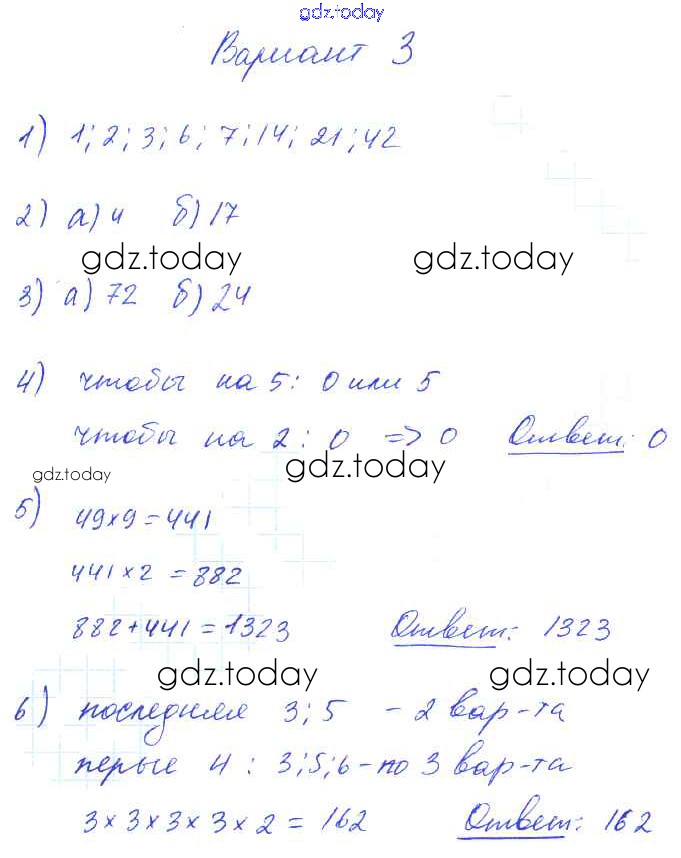 gdz.today
Вариант 3
1) 1; 2; 3; 6; 7; 14; 21; 42
2) а) 4 б) 17
gdz.today gdz.today
3) а) 72 б) 24
4) чтобы на 5: 0 или 5
чтобы на 2: 0 => 0 Ответ: 0
gdz.today gdz.today
5) 49×9=441
441×2=882
882+441=1323 Ответ: 1323
gdz.today gdz.today
6) последняя 3; 5 - 2 вар-та
перые 4: 3;5;6 - по 3 вар-та
3×3×3×3×2=162 Ответ: 162